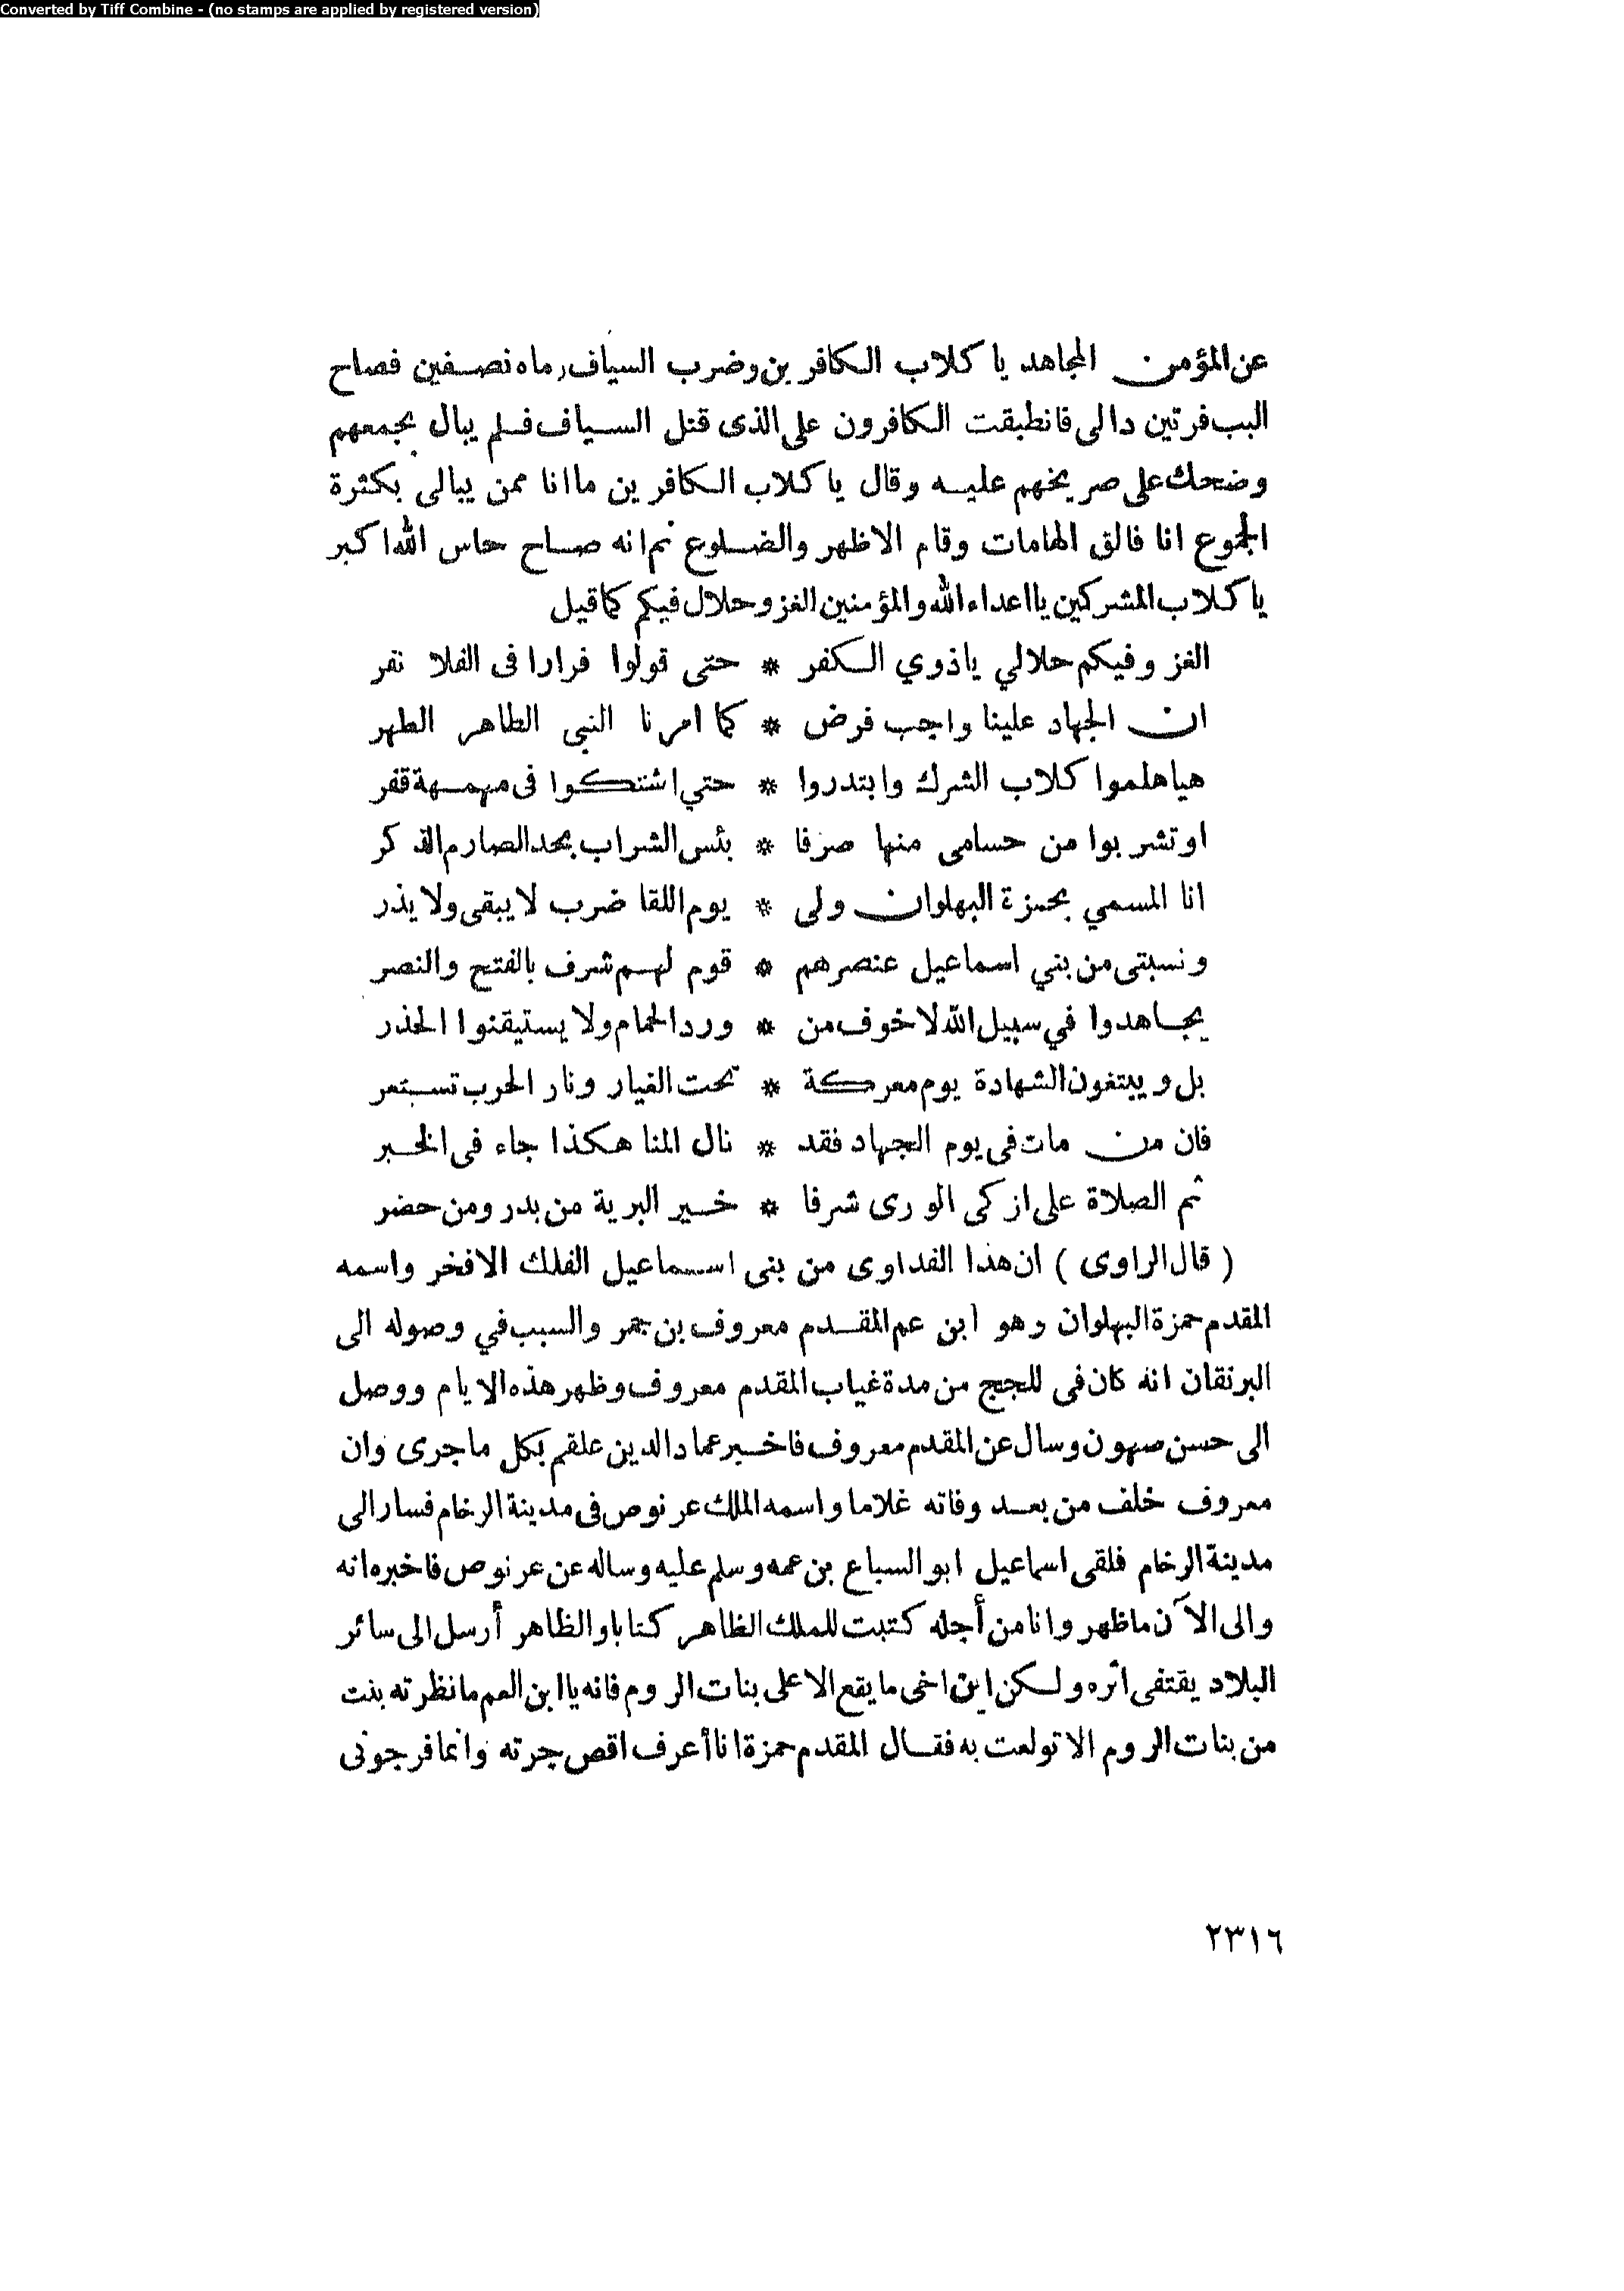 Converted by Tiff Combine - (no stamps are applied by registered version)
عن المؤمن المجاهد يا كلاب الكافرين وضرب السياف رماه نصفين فصاح
البب فرتين دالى فانطبقت الكافرون على الذى قتل السياف فلم يبال بجمعهم
وضحك على صريخهم عليه وقال يا كلاب الكافرين ما انا ممن يبالى بكثرة
الجموع انا فالق الهامات وقام الاظهر والضلوع ثم انه صاح حاس الله اكبر
يا كلاب المشركين يا اعداء الله والمؤمنين الغز وحلال فيكم كما قيل
الغز وفيكم حلالي ياذوي الكفر * حتى قولوا فرارا فى الفلا نفر
ان الجهاد علينا واجب فرض * كما امرنا النبى الطاهر الطهر
هيا هلموا كلاب الشرك وابتدروا * حتي اشتكوا فى مهمهة قفر
او تشربوا من حسامى منها صرفا * بئس الشراب بحد الصارم الذكر
انا المسمي بحمزة البهلوان ولى * يوم اللقا ضرب لا يبقى ولا يذر
ونسبتى من بني اسماعيل عنصرهم * قوم لهم شرف بالفتح والنصر
يجاهدوا في سبيل الله لا خوف من * ورد الحمام ولا يستيقنوا الحذر
بل ويبتغون الشهادة يوم معركة * تحت الغبار ونار الحرب تستعر
فان من مات فى يوم الجهاد فقد * نال المنا هكذا جاء فى الخبر
ثم الصلاة على ازكى الورى شرفا * خير البرية من بدر ومن حضر
( قال الراوى ) ان هذا الفداوى من بنى اسماعيل الفلك الافخر واسمه
المقدم حمزة البهلوان وهو ابن عم المقدم معروف بن جمر والسبب في وصوله الى
البرنقان انه كان فى للجج من مدة غياب المقدم معروف وظهر هذه الايام ووصل
الى حسن صهون وسال عن المقدم معروف فاخبر عماد الدين علقم بكل ما جرى وان
معروف خلف من بعد وفاته غلاما واسمه الملك عرنوص فى مدينة الرخام فسار الى
مدينة الرخام فلقى اسماعيل ابو السباع بن عمه وسلم عليه وساله عن عرنوص فاخبره انه
والى الآن ما ظهر وانا من أجله كتبت للملك الظاهر كتابا والظاهر أرسل الى سائر
البلاد يقتفى اثره ولكن ابن اخى ما يقع الا على بنات الروم فانه يا ابن العم ما نظرته بنت
من بنات الروم الا تولعت به فقال المقدم حمزة انا أعرف اقص جرته وانما فرجونى
٢٣١٦